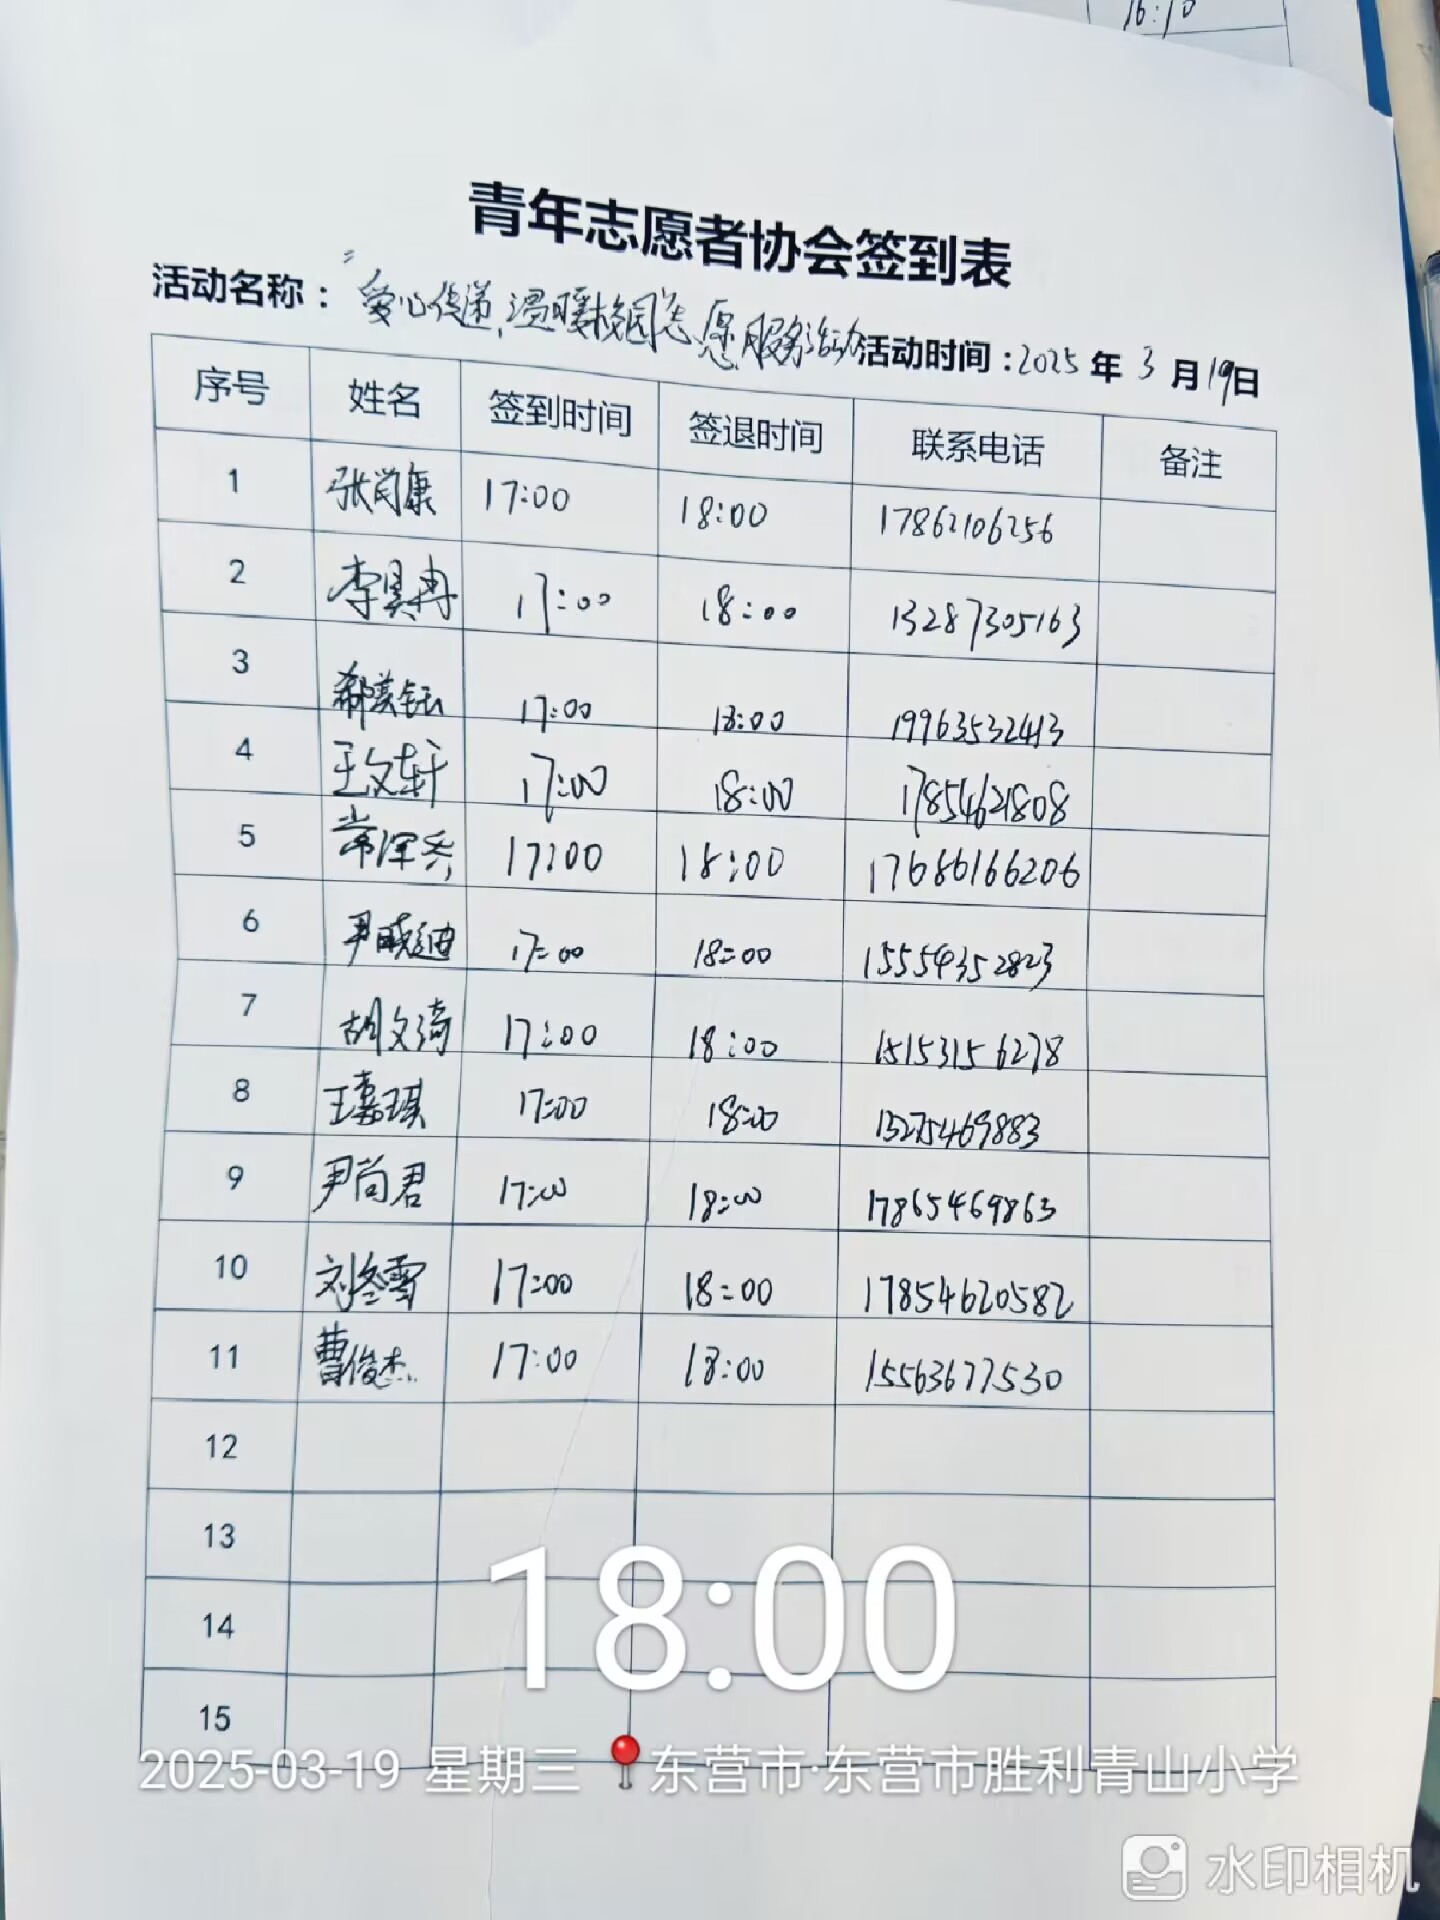 16:10
青年志愿者协会签到表
活动名称："爱心传递,温暖校园"志愿服务活动 活动时间:2025年3月19日
序号 姓名 签到时间 签退时间 联系电话 备注
1 张尚康 17:00 18:00 17862106256
2 李昊冉 17:00 18:00 13287305163
3 17:00 18:00 19963532413
4 王文轩 17:00 18:00 17854621808
5 17:00 18:00 17686166206
6 尹晓迪 17:00 18:00 15554352823
7 胡文涛 17:00 18:00 15153156278
8 王嘉琪 17:00 18:00 13275469883
9 尹尚君 17:00 18:00 17865469863
10 刘冬雪 17:00 18:00 17854620582
11 曹俊杰 17:00 18:00 15563677530
12
13
14
15
18:00
2025-03-19 星期三 东营市·东营市胜利青山小学
水印相机